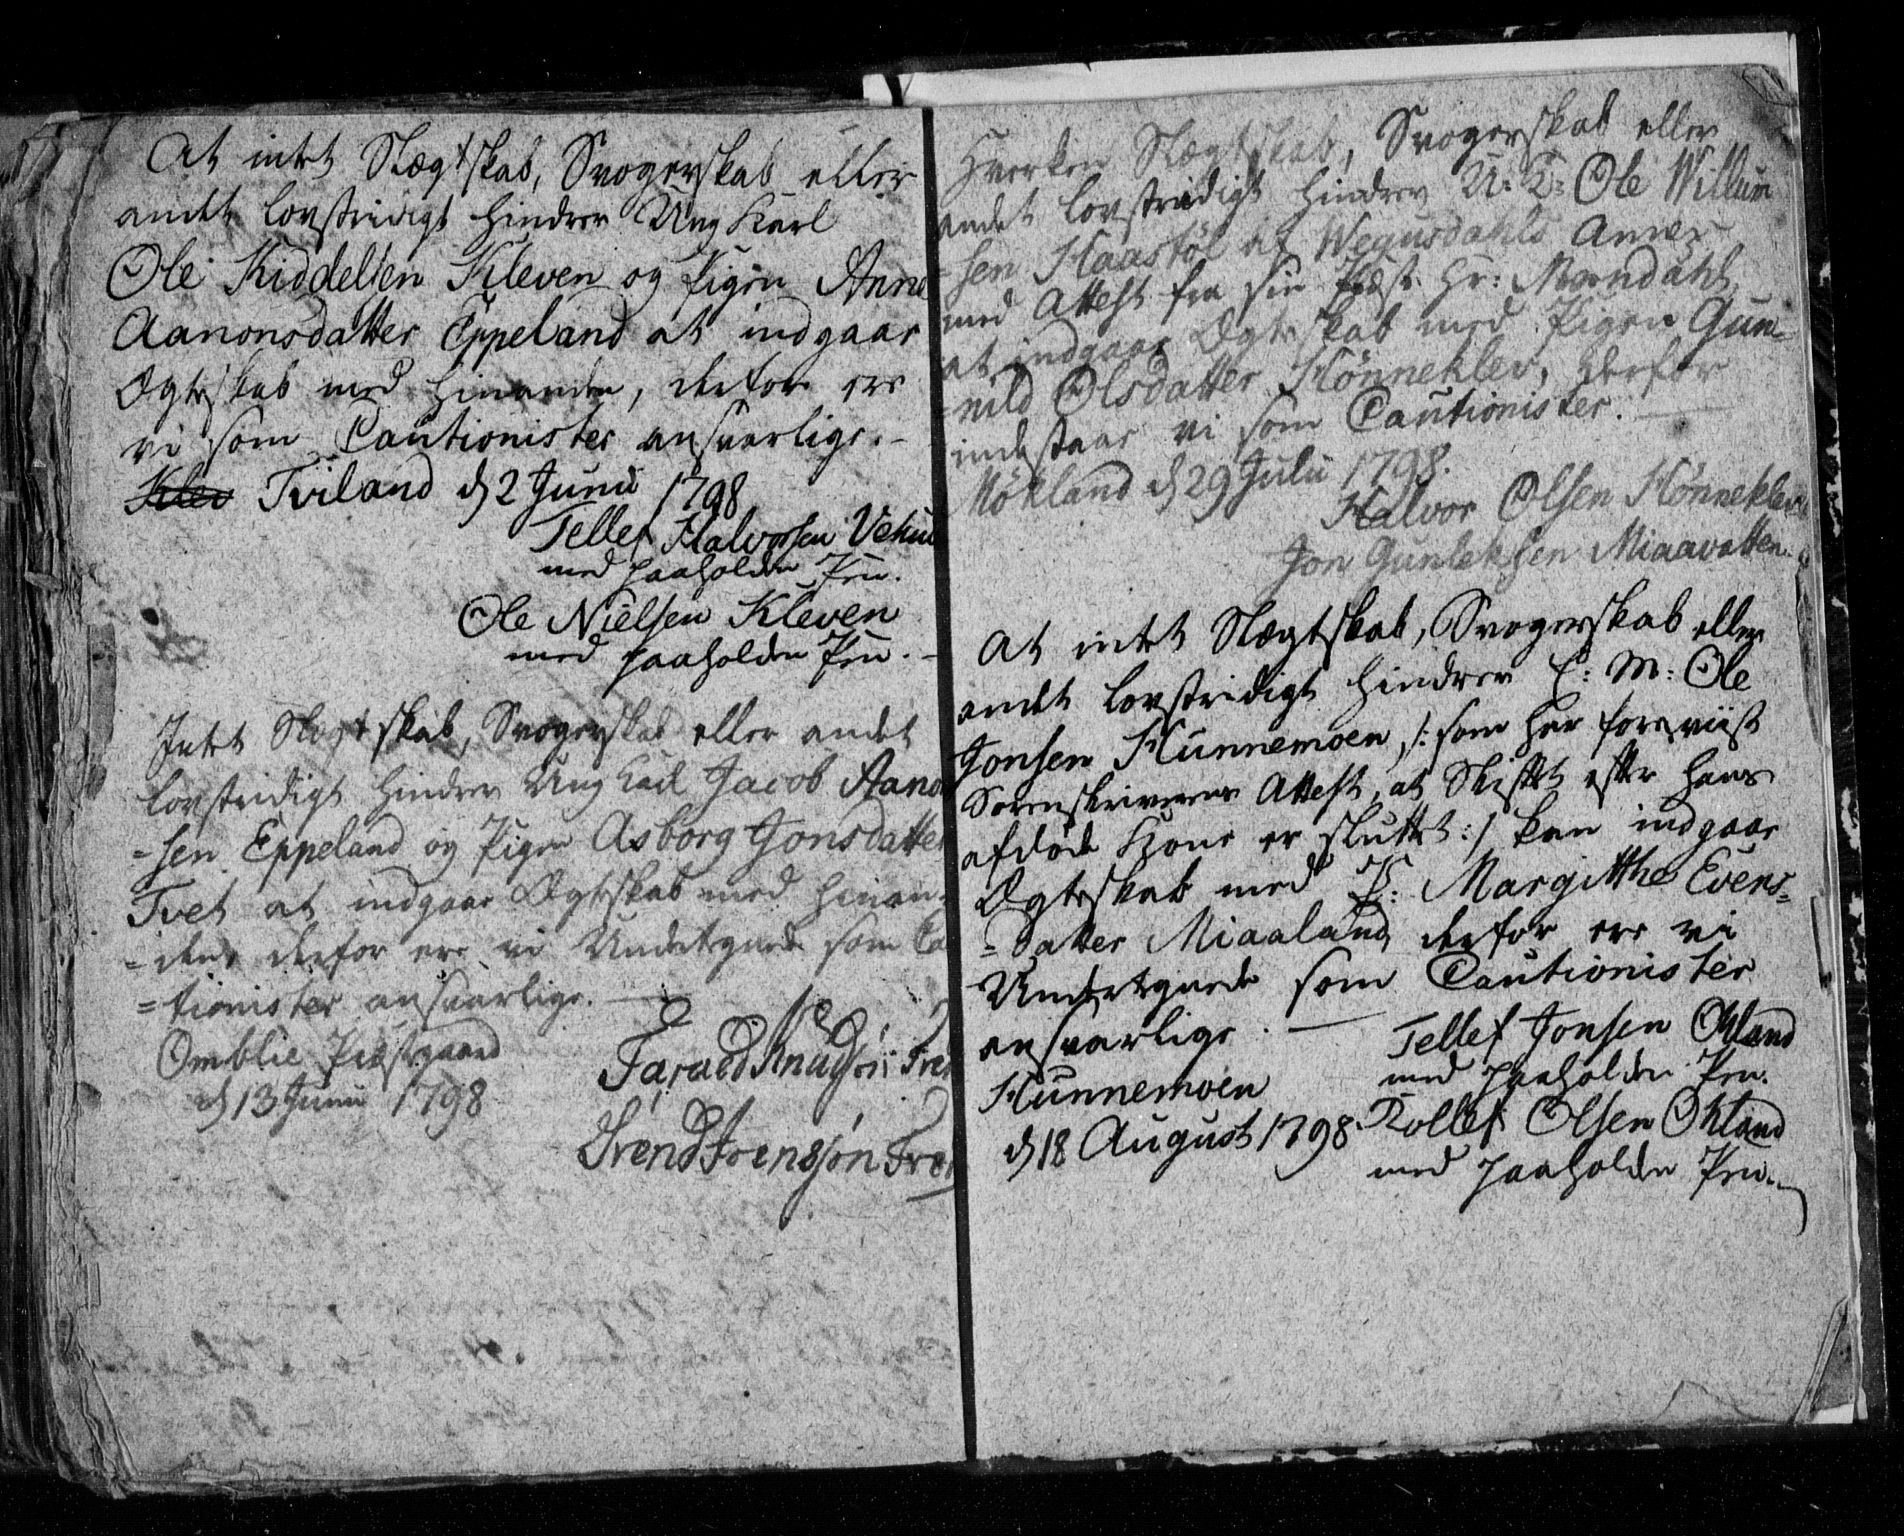 At intet Slægtskab, Svogerskab eller
andet lovstridigt hindrer Ung Karl
Ole Kiddelsen Kleven og Pigen Anne
Aanonsdatter Eppeland at indgaae
Ægteskab med hinanden, derfor ere
vi som Cautionister ansvarlige.-
Klev Tviland d 2 Junii 1798
Tellef Halvorsen Vehu
med paaholden Pen.
Ole Nielsen Kleven
med paaholden Pen.-
Intet Slægtskab, Svogerskab eller andet
lovstridigt hindrer Ung Karl Jacob Aanon
=sen Eppeland og Pigen Asborg Jonsdatter
Tvet at indgaae Ægteskab med hinan=
=den, derfor ere vi Undertegnede som Cau
=tionister ansvarlige.
Omblie Præstgaard
d 13 Junii 1798
Tarald Knudsøn Tvet
Svend Svensøn Tvet
Hverken Slægtskab, Svogerskab eller
andet lovstridigt hindrer U: K: Ole Willum
=sen Haastøl af Wegusdahls Annex
med Attest fra sin Præst Hr: Mørndahl
at indgaae Ægteskab med Pigen Gun=
=nild Olsdatter Hønneklev, derfor
indestaae vi som Cautionister.
Møkland d 29 Julii 1798.
Halvor Olsen Hønneklev
Jon Gunleksen Miaavatten.
At intet Slægtskab, Svogerskab eller
andet lovstridigt hindrer E: M: Ole
Jonsen Hunnemoen, /: som har foreviist
Sorenskriverens Attest, at Skiftet efter hans
afdøde Kone er sluttet :/ kan indgaae
Ægteskab med P: Margitthe Evens=
=datter Miaaland, derfor ere vi
Undertegnede som Cautionister
ansvarlige.
Hunnemoen
d 18 August 1798.
Tellef Jonsen Okland
med paaholden Pen.
Rollef Olsen Okland
med paaholden Pen.